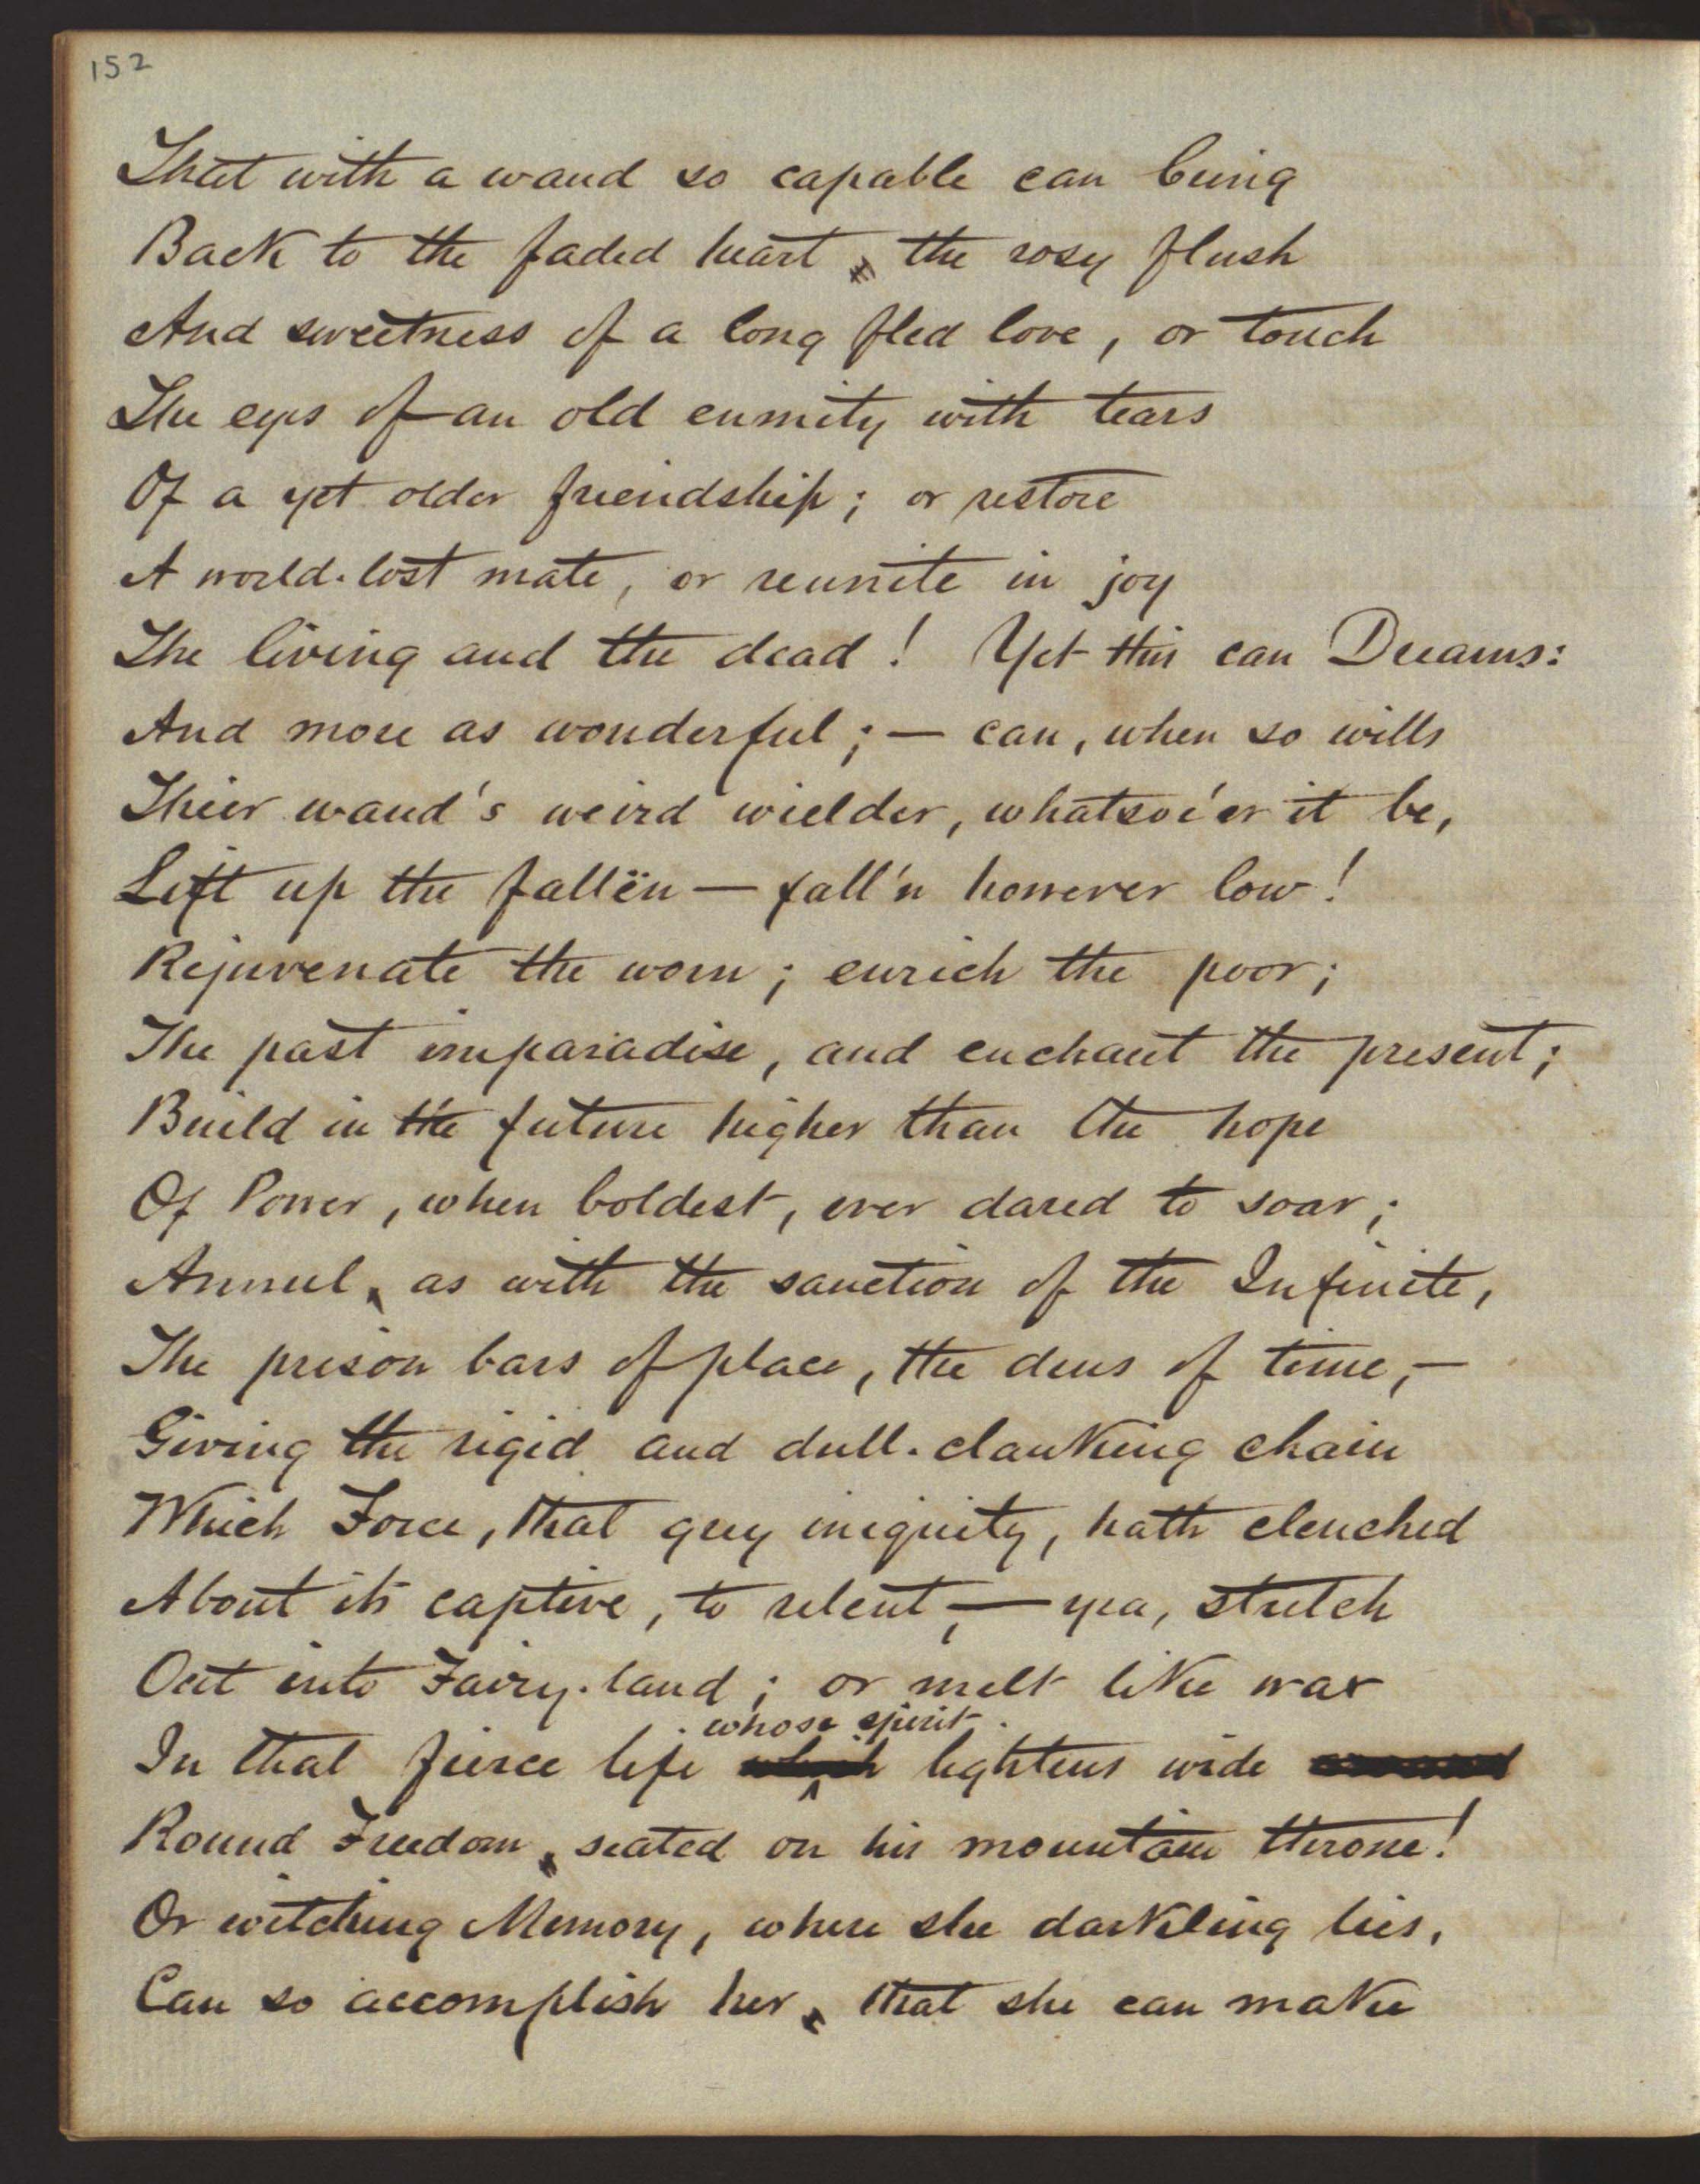 152
That with a wand so capable can bring
Back to the faded heart the rosy flush
And sweetness of a long fled love, or touch
The eyes of an old enmity with tears
Of a yet older friendship; or restore
A world-lost mate, or reunite in joy
The living and the dead! Yet this can Dreams:
And more as wonderful; — can, when so wills
Their wand's weird wielder, whatsoe'er it be,
Lift up the fallën — fall'n however low!
Rejuvenate the worn; enrich the poor;
The past imparadise, and enchant the present;
Build in the future higher than the hope
Of Power, when boldest, ever dared to soar;
Annul, as with the sanction of the Infinite,
The prison bars of place, the dens of time, —
Giving the rigid and dull-clanking chain
Which Force, that grey iniquity, hath clenched
About its captive, to relent, — yea, stretch
Out into Fairy-land; or melt like wax
whose spirit
In that fierce life which lightens wide
Round Freedom, seated on his mountain throne!
Or witching Memory, where she darkling lies,
Can so accomplish her, that she can make